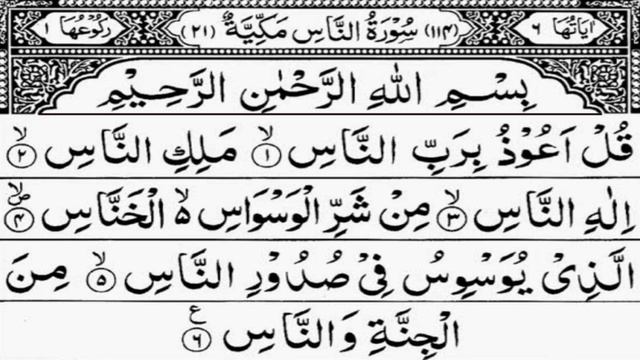 اٰيَاتُهَا ٦ (١١٤) سُوْرَةُ النَّاسِ مَكِّيَّةٌ (٢١) رُكُوْعُهَا ١
بِسْمِ اللهِ الرَّحْمٰنِ الرَّحِيْمِ
قُلْ اَعُوْذُ بِرَبِّ النَّاسِ ۙ‏﴿۱﴾ مَلِكِ النَّاسِ ۙ‏﴿۲﴾
اِلٰهِ النَّاسِ ۙ‏﴿۳﴾ مِنْ شَرِّ الْوَسْوَاسِ ۙ الْخَنَّاسِ ۪ۙ‏﴿۴﴾
الَّذِىْ يُوَسْوِسُ فِىْ صُدُوْرِ النَّاسِ ۙ‏﴿۵﴾ مِنَ
الْجِنَّةِ وَالنَّاسِ ﴿۶﴾ ع